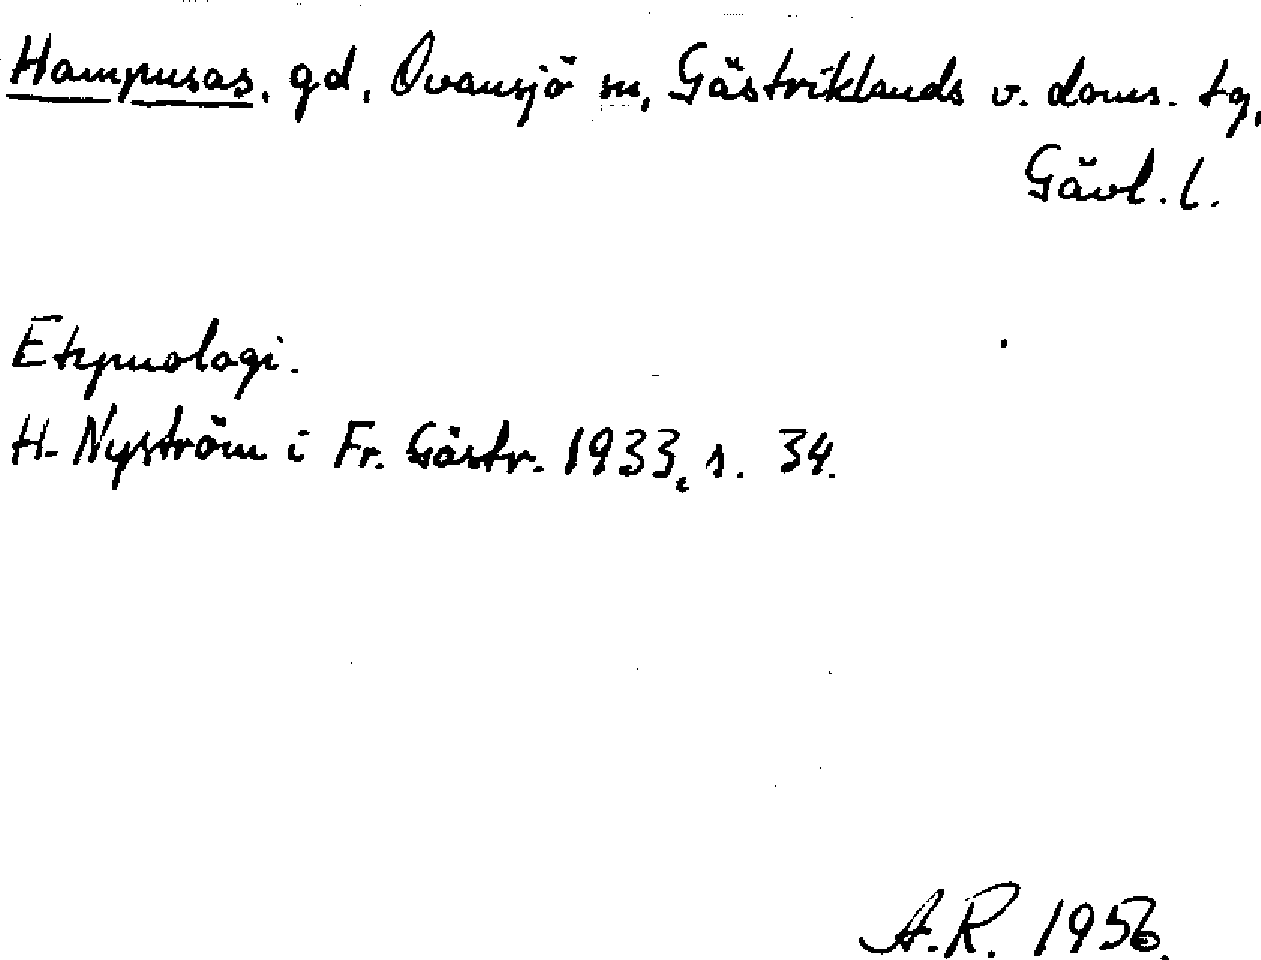 Hampusas. gd, Ovansjö sn, Gästriklands v. doms. tg,
Gävl. l.
Etymologi.
H. Nyström i Fr. Gästr. 1933, s. 34.
A.R. 1956.